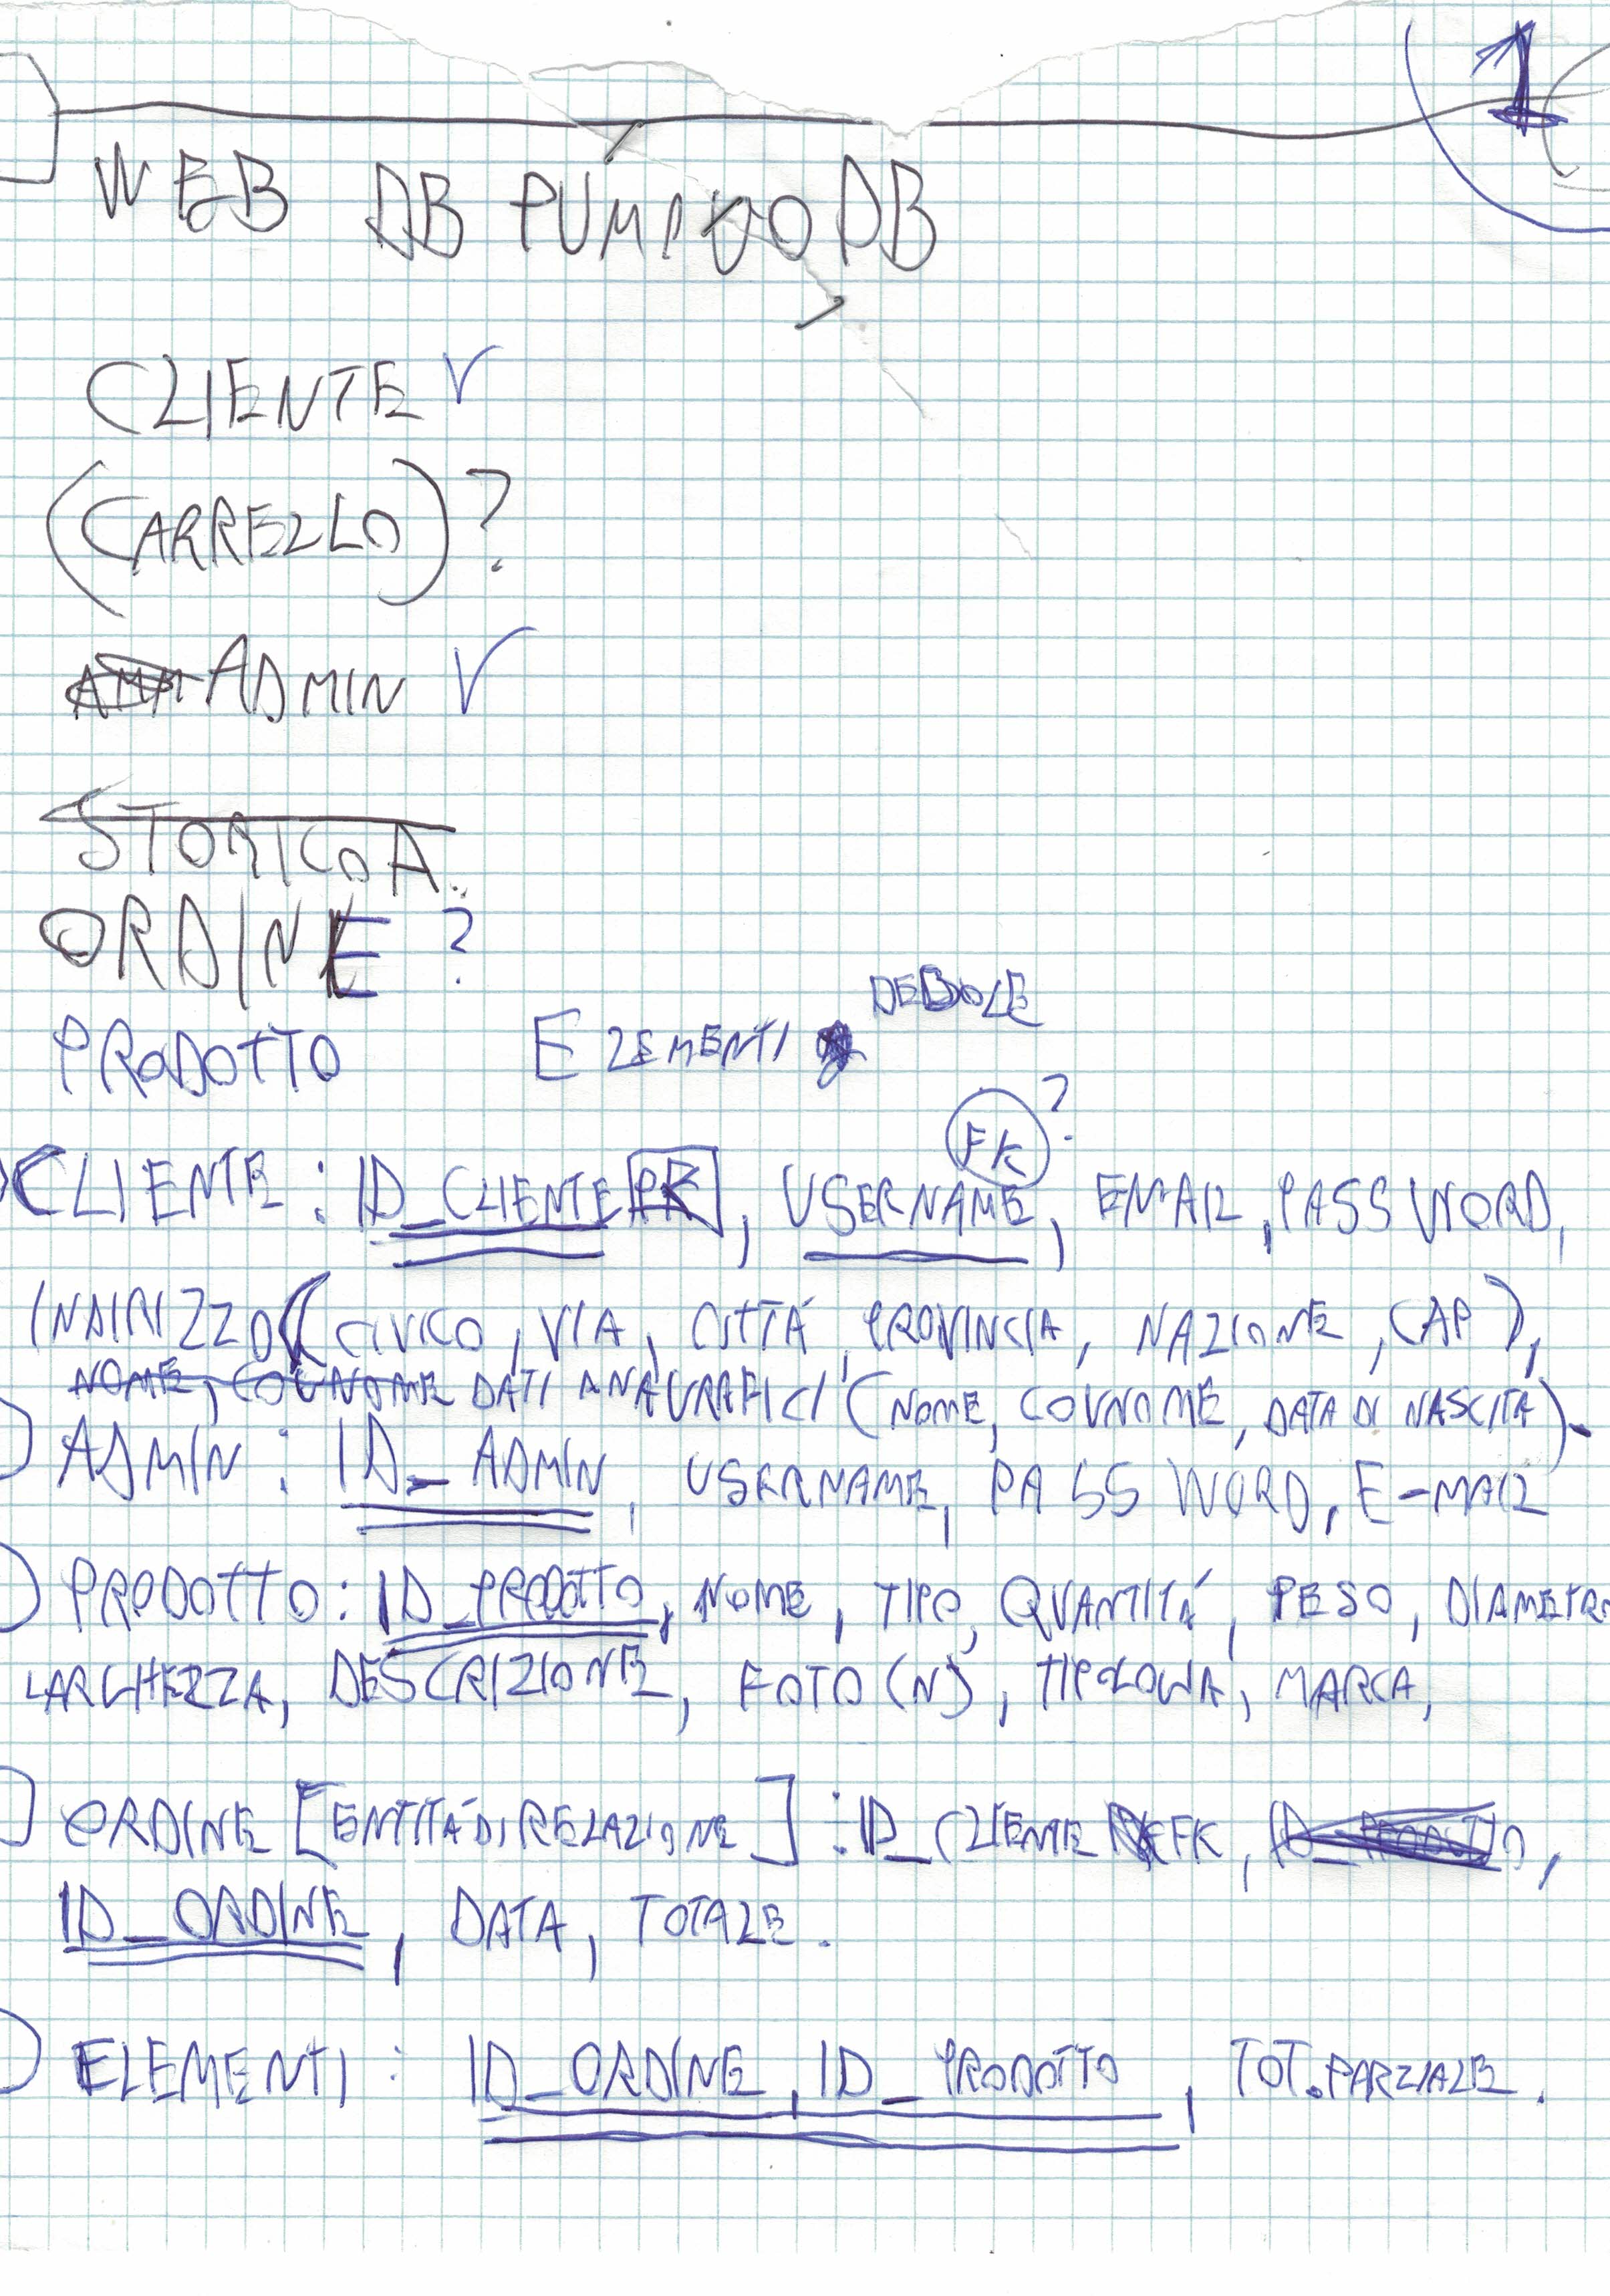 1
WEB DB PUMPKOODB
CLIENTE ✓
(CARRELLO) ?
ADMIN ✓
STORICO A..
ORDINE ?
DEBOLE
PRODOTTO ELEMENTI
FK ?
CLIENTE : ID_CLIENTE PK, USERNAME, EMAIL, PASSWORD,
INDIRIZZO (CIVICO, VIA, CITTÀ, PROVINCIA, NAZIONE, CAP),
NOME, COGNOME DATI ANAGRAFICI (NOME, COGNOME, DATA DI NASCITA).
ADMIN : ID_ADMIN, USERNAME, PASSWORD, E-MAIL
PRODOTTO : ID_PRODOTTO, NOME, TIPO, QUANTITÀ, PESO, DIAMETRO
LARGHEZZA, DESCRIZIONE, FOTO (N), TIPOLOGIA, MARCA,
ORDINE [ENTITÀ DI RELAZIONE] : ID_CLIENTE FK,
ID_ORDINE, DATA, TOTALE.
ELEMENTI : ID_ORDINE, ID_PRODOTTO, TOT. PARZIALE.